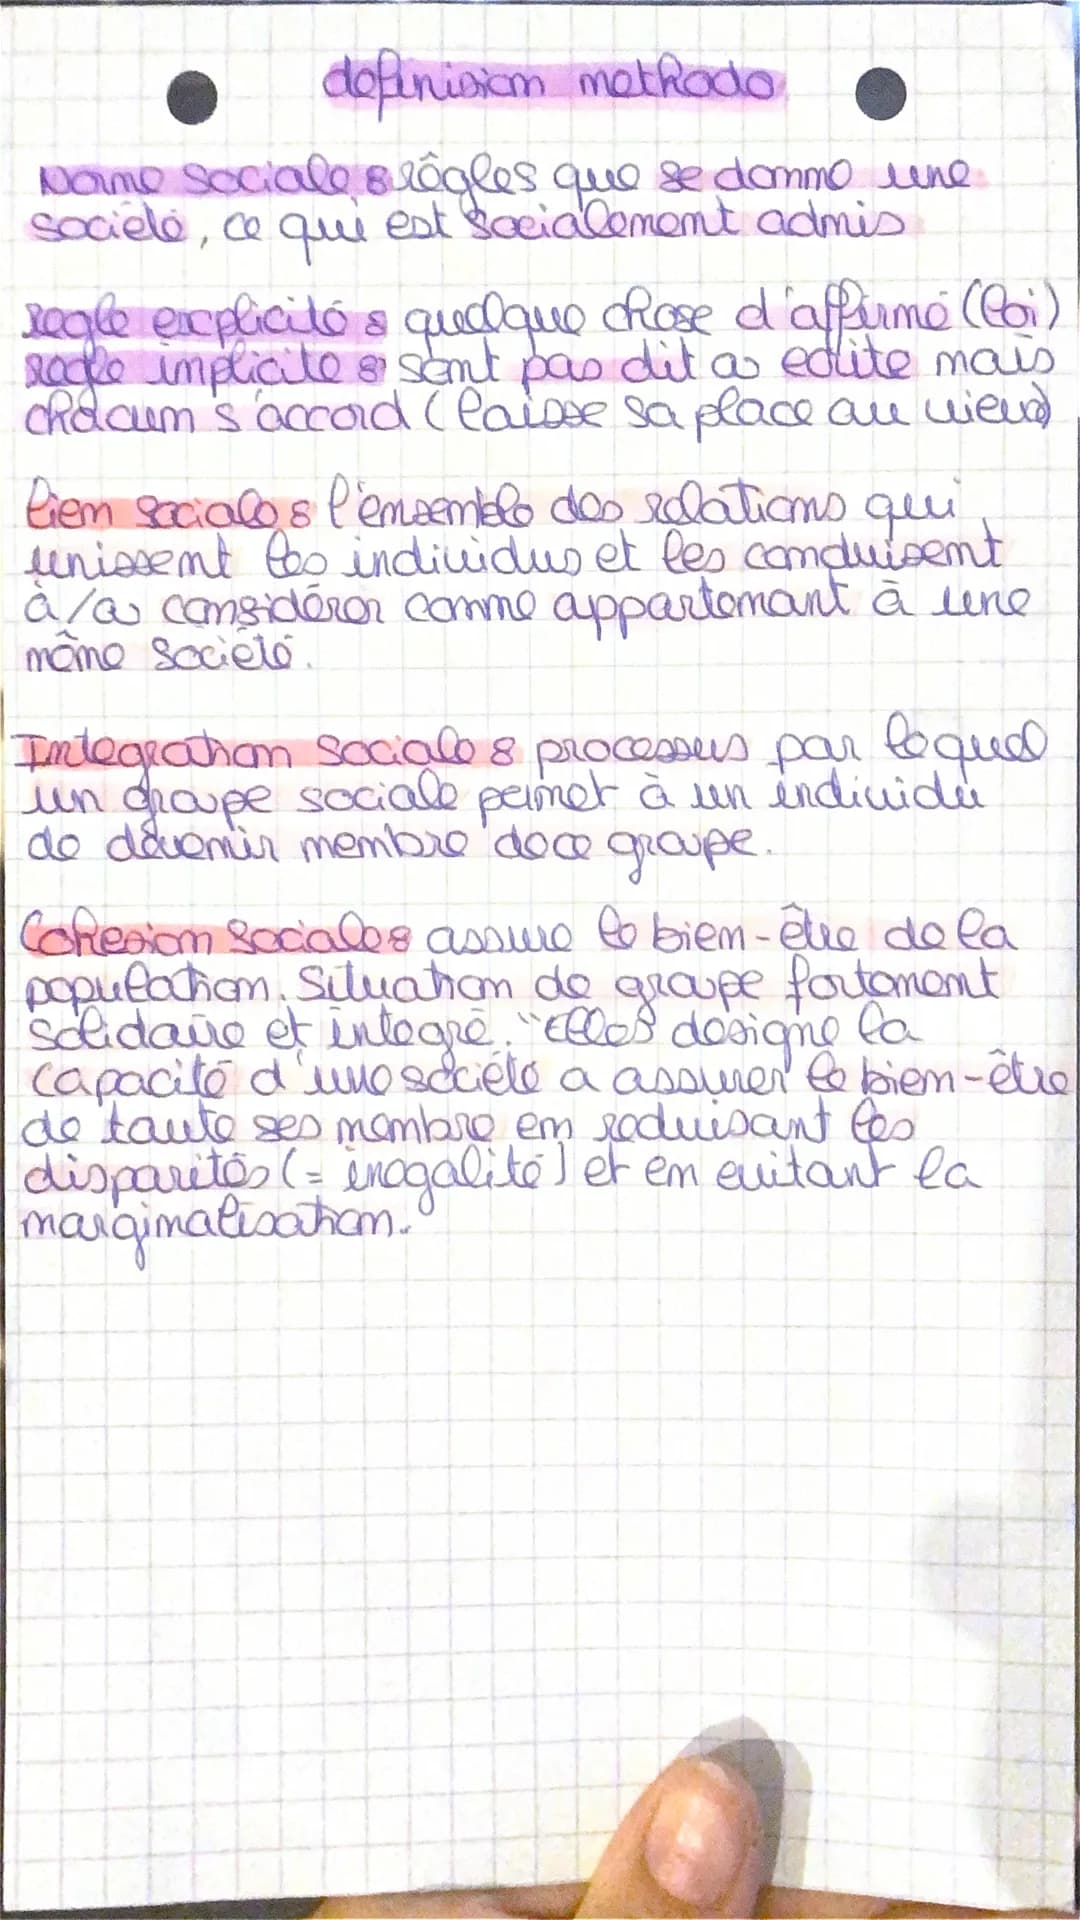 definision methodo
Norme sociale : règles que se donne une
société, ce qui est socialement admis
Regle explicité : quelque chose d'affirmé (loi)
regle implicite : sont pas dit a edite mais
chacun s'accord (laisse sa place au vieux)
lien sociale : l'ensemble des relations qui
unissent les individus et les conduisent
à/a considérer comme appartenant à une
même société.
Integration sociale : processus par lequel
un groupe sociale permet à un individu
de devenir membre de ce groupe.
Cohesion sociale : assure le bien-être de la
population. Situation de groupe fortement
solidaire et intégré. "Elles designe la
capacité d'une société a assurer le bien-être
de toute ses membre en reduisant les
disparités (= inégalité) et en evitant la
marginalisation."